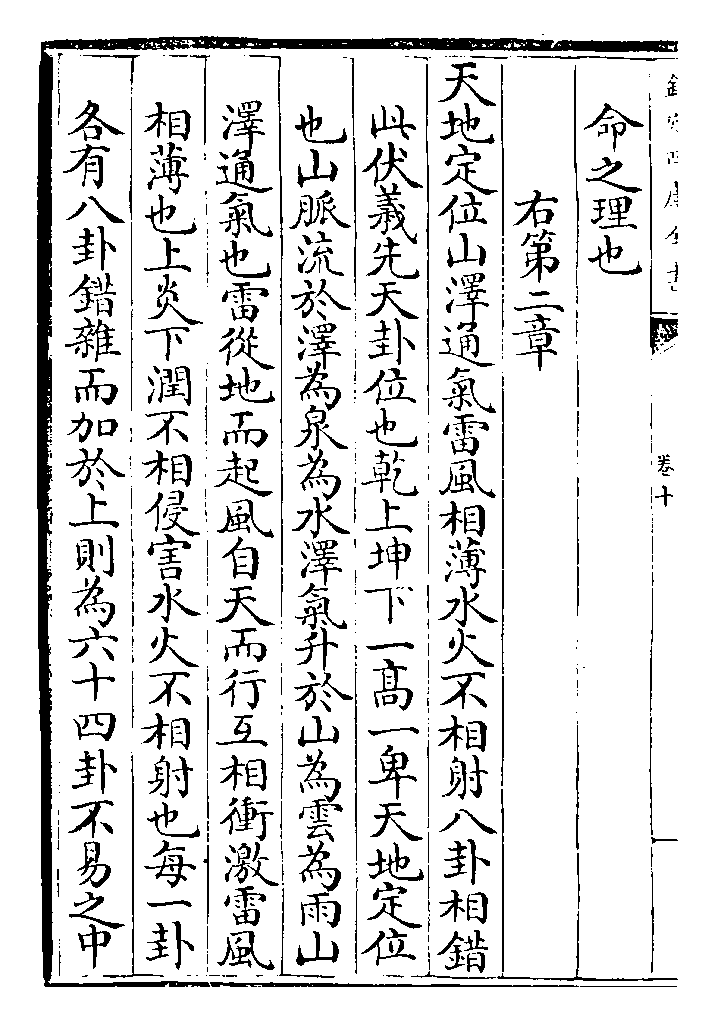 欽定四庫全書
卷十
命之理也
右第二章
天地定位山澤通氣雷風相薄水火不相射八卦相錯
此伏羲先天卦位也乾上坤下一高一卑天地定位
也山脈流於澤為泉為水澤氣升於山為雲為雨山
澤通氣也雷從地而起風自天而行互相衝激雷風
相薄也上炎下潤不相侵害水火不相射也每一卦
各有八卦錯雜而加於上則為六十四卦不易之中